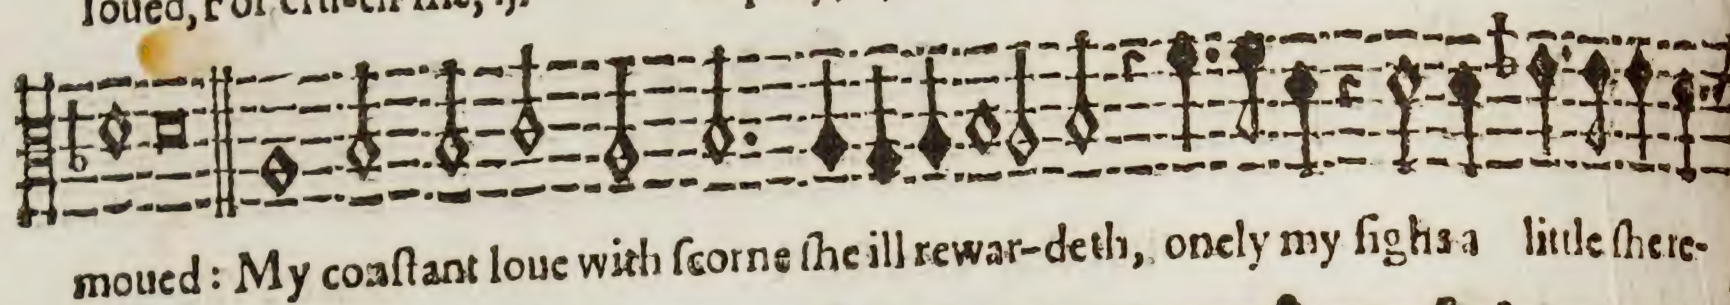 loued, For
moued : My constant loue with scorne she ill rewar-deth, onely my sighs a little shere-